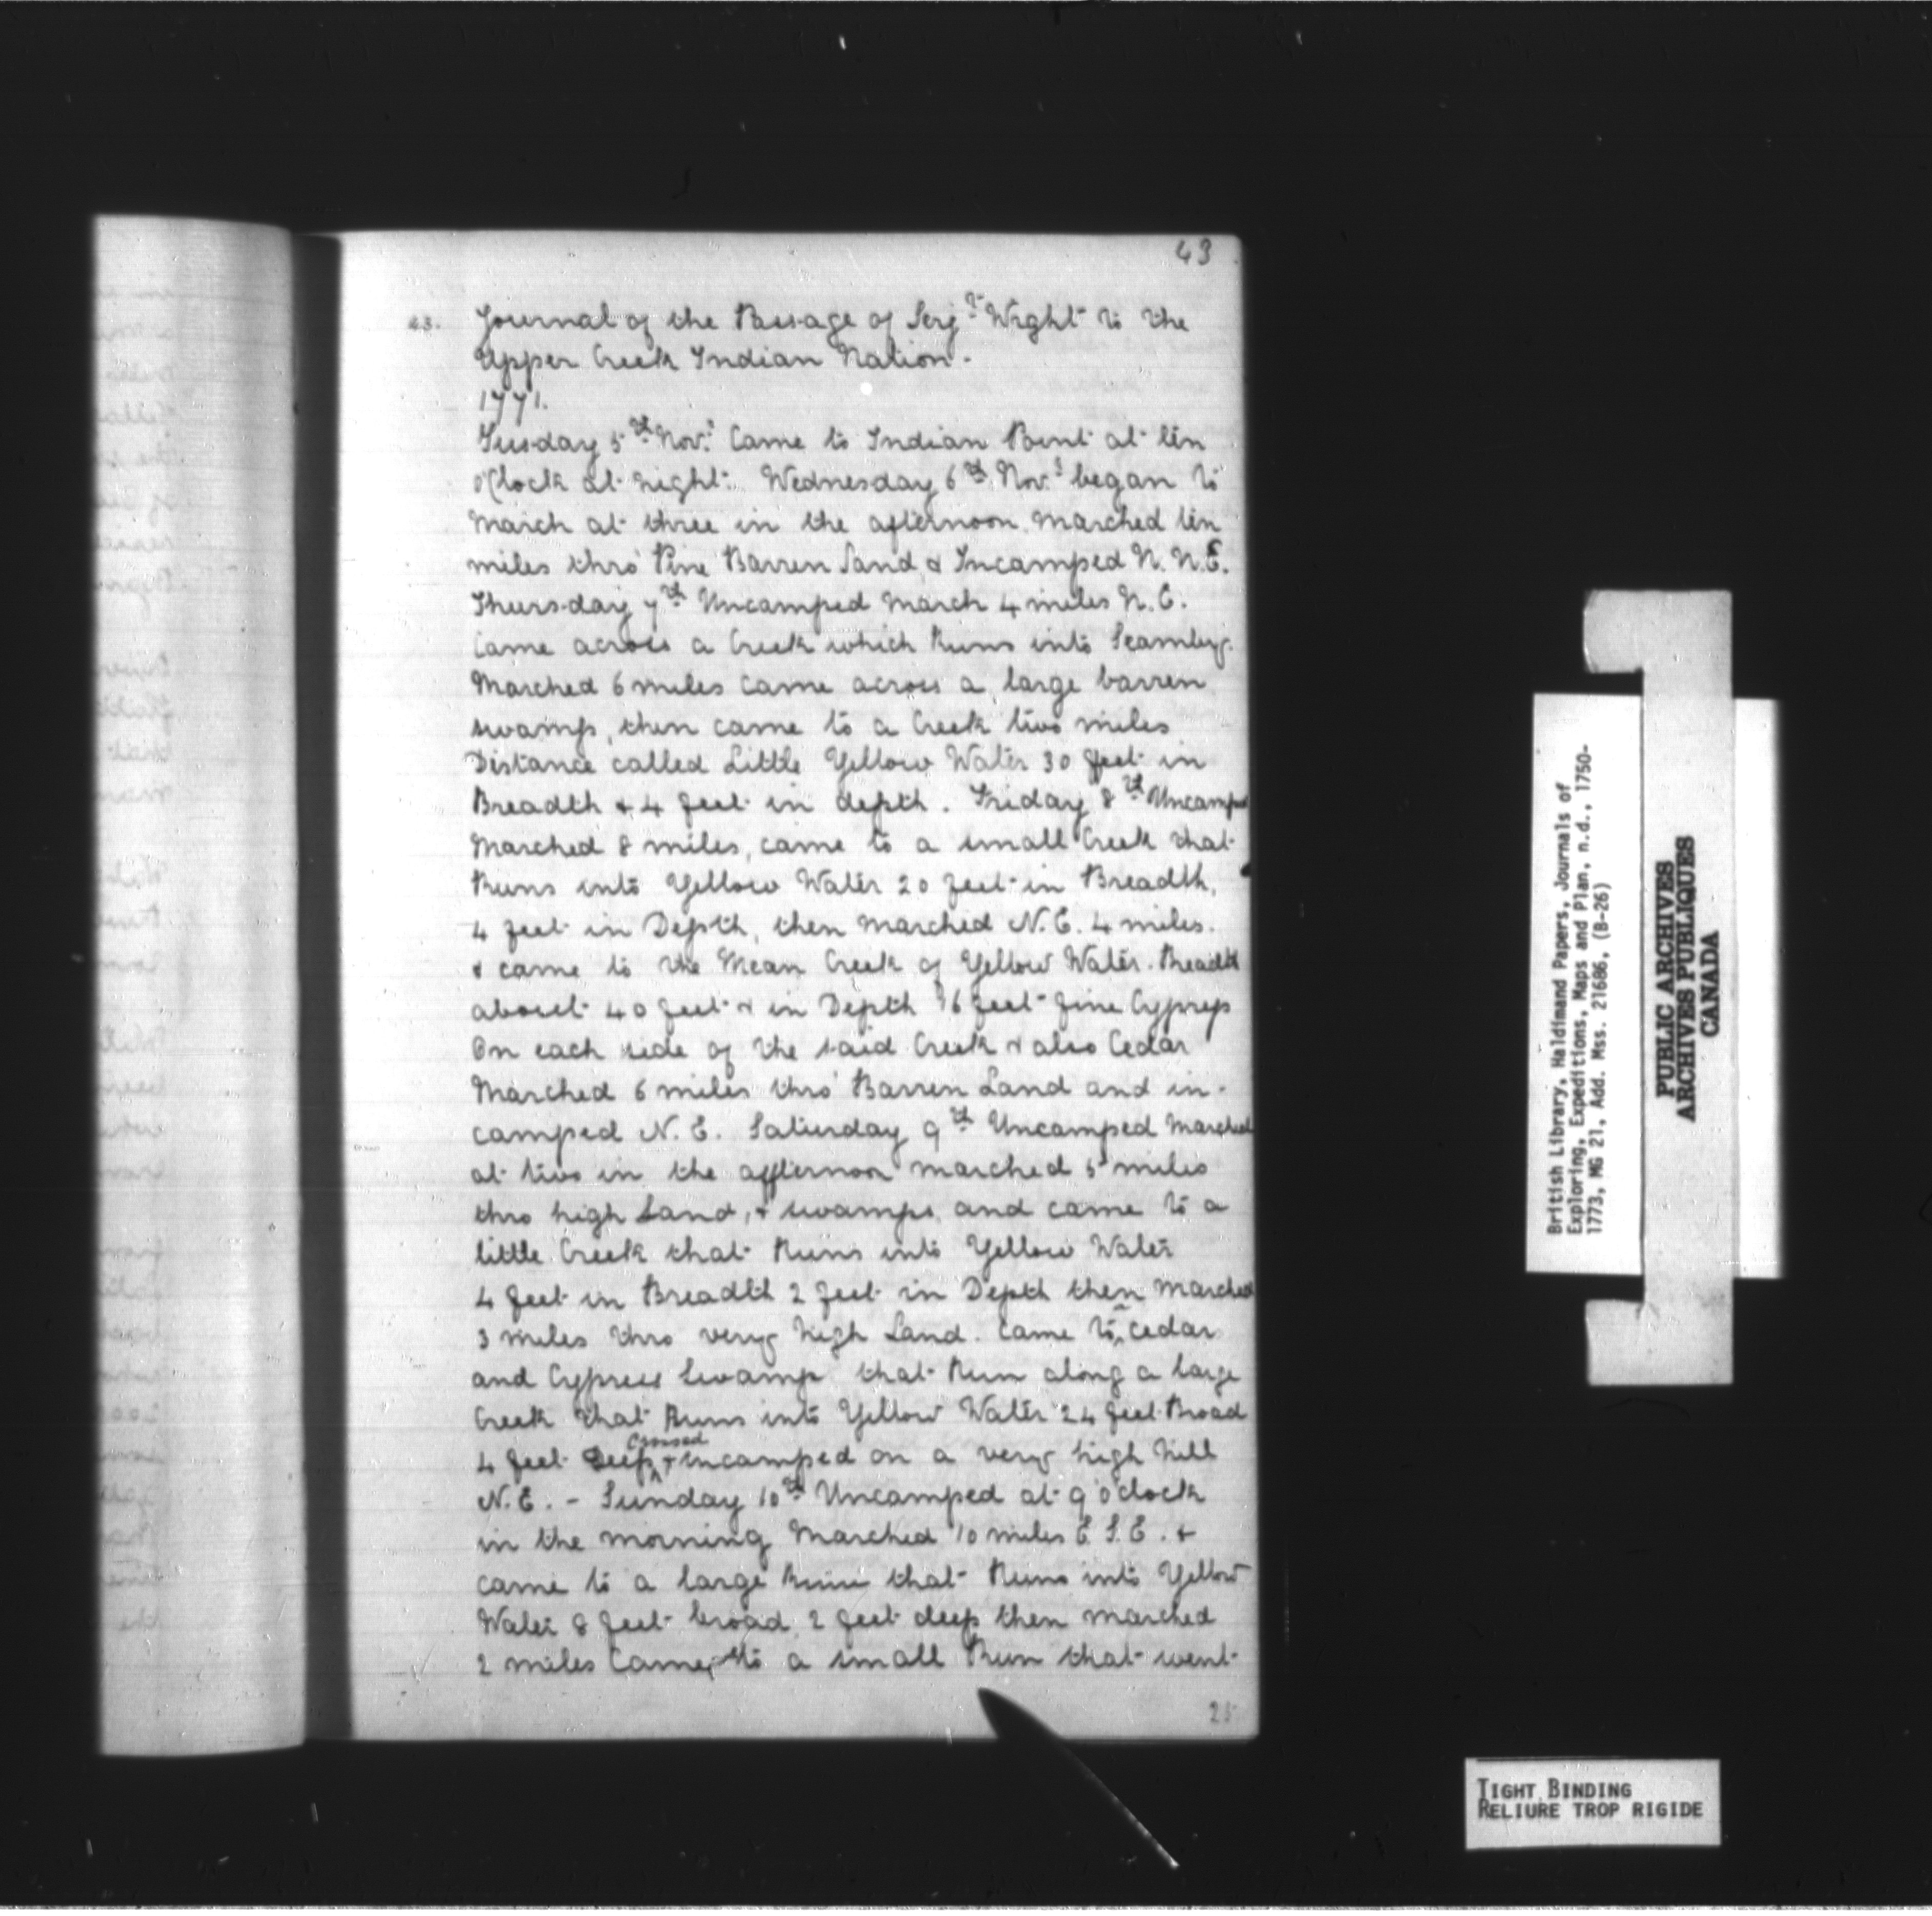 43
43. Journal of the Passage of Serj.t Wright to the
Upper Creek Indian Nation.
1771.
Tuesday 5th Nov.r Came to Indian Point at ten
o'Clock at night. Wednesday 6th Nov.r began to
March at three in the afternoon. Marched ten
miles thro' Pine Barren Sand & Incamped N. N.E.
Thursday 7th Uncamped March 4 miles N. E.
Came across a Creek which Runs into Scamby.
Marched 6 miles came across a large barren
swamp, then came to a Creek two miles
Distance called Little Yellow Water 30 feet in
Breadth & 4 feet in depth. Friday 8th Uncamped
Marched 8 miles, came to a small Creek that
Runs into Yellow Water 20 feet in Breadth,
4 feet in Depth, then marched N. E. 4 miles.
& came to the Mean Creek of Yellow Water. Breadth
about 40 feet & in Depth 16 feet fine Cypress
On each side of the said Creek & also Cedar
Marched 6 miles thro' Barren Land and in-
camped N. E. Saturday 9th Uncamped Marched
at two in the afternoon marched 5 miles
thro high Land, & swamps, and came to a
little Creek that Runs into Yellow Water
4 feet in Breadth 2 feet in Depth then Marched
3 miles thro very high Land. Came to a Cedar
and Cypress Swamp that Run along a large
Creek that Runs into Yellow Water 24 feet Broad
4 feet Deep Crossed & incamped on a very high hill
N. E. - Sunday 10th Uncamped at 9 o'clock
in the morning Marched 10 miles E S. E. &
came to a large that Runs into Yellow
Water 8 feet broad 2 feet deep then marched
2 miles Came to a small Run that went
25
British Library, Haldimand Papers, Journals of
Exploring, Expeditions, Maps and Plan, n.d., 1750-
1773, MG 21, Add. Mss. 21686, (B-26)
PUBLIC ARCHIVES
ARCHIVES PUBLIQUES
CANADA
TIGHT BINDING
RELIURE TROP RIGIDE